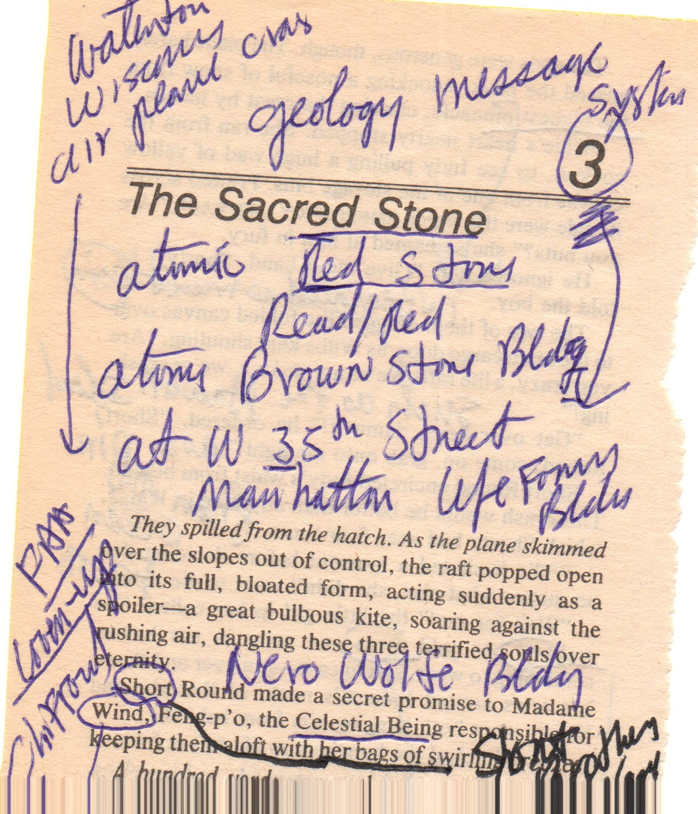 Waterton
Wisconsin
air plane cras
geology message
System
3
The Sacred Stone
atomic Red Stone
Read/Red
atoms Brown Stone Bldg
at W 35th Street
Manhattan Life Forms
Bldg
They spilled from the hatch. As the plane skimmed
over the slopes out of control, the raft popped open
into its full, bloated form, acting suddenly as a
spoiler—a great bulbous kite, soaring against the
rushing air, dangling these three terrified souls over
eternity.
Nero Wolfe Bldg
Short Round made a secret promise to Madame
Wind, Feng-p'o, the Celestial Being responsible for
keeping them aloft with her bags of swirling
A hundred
Cover-up